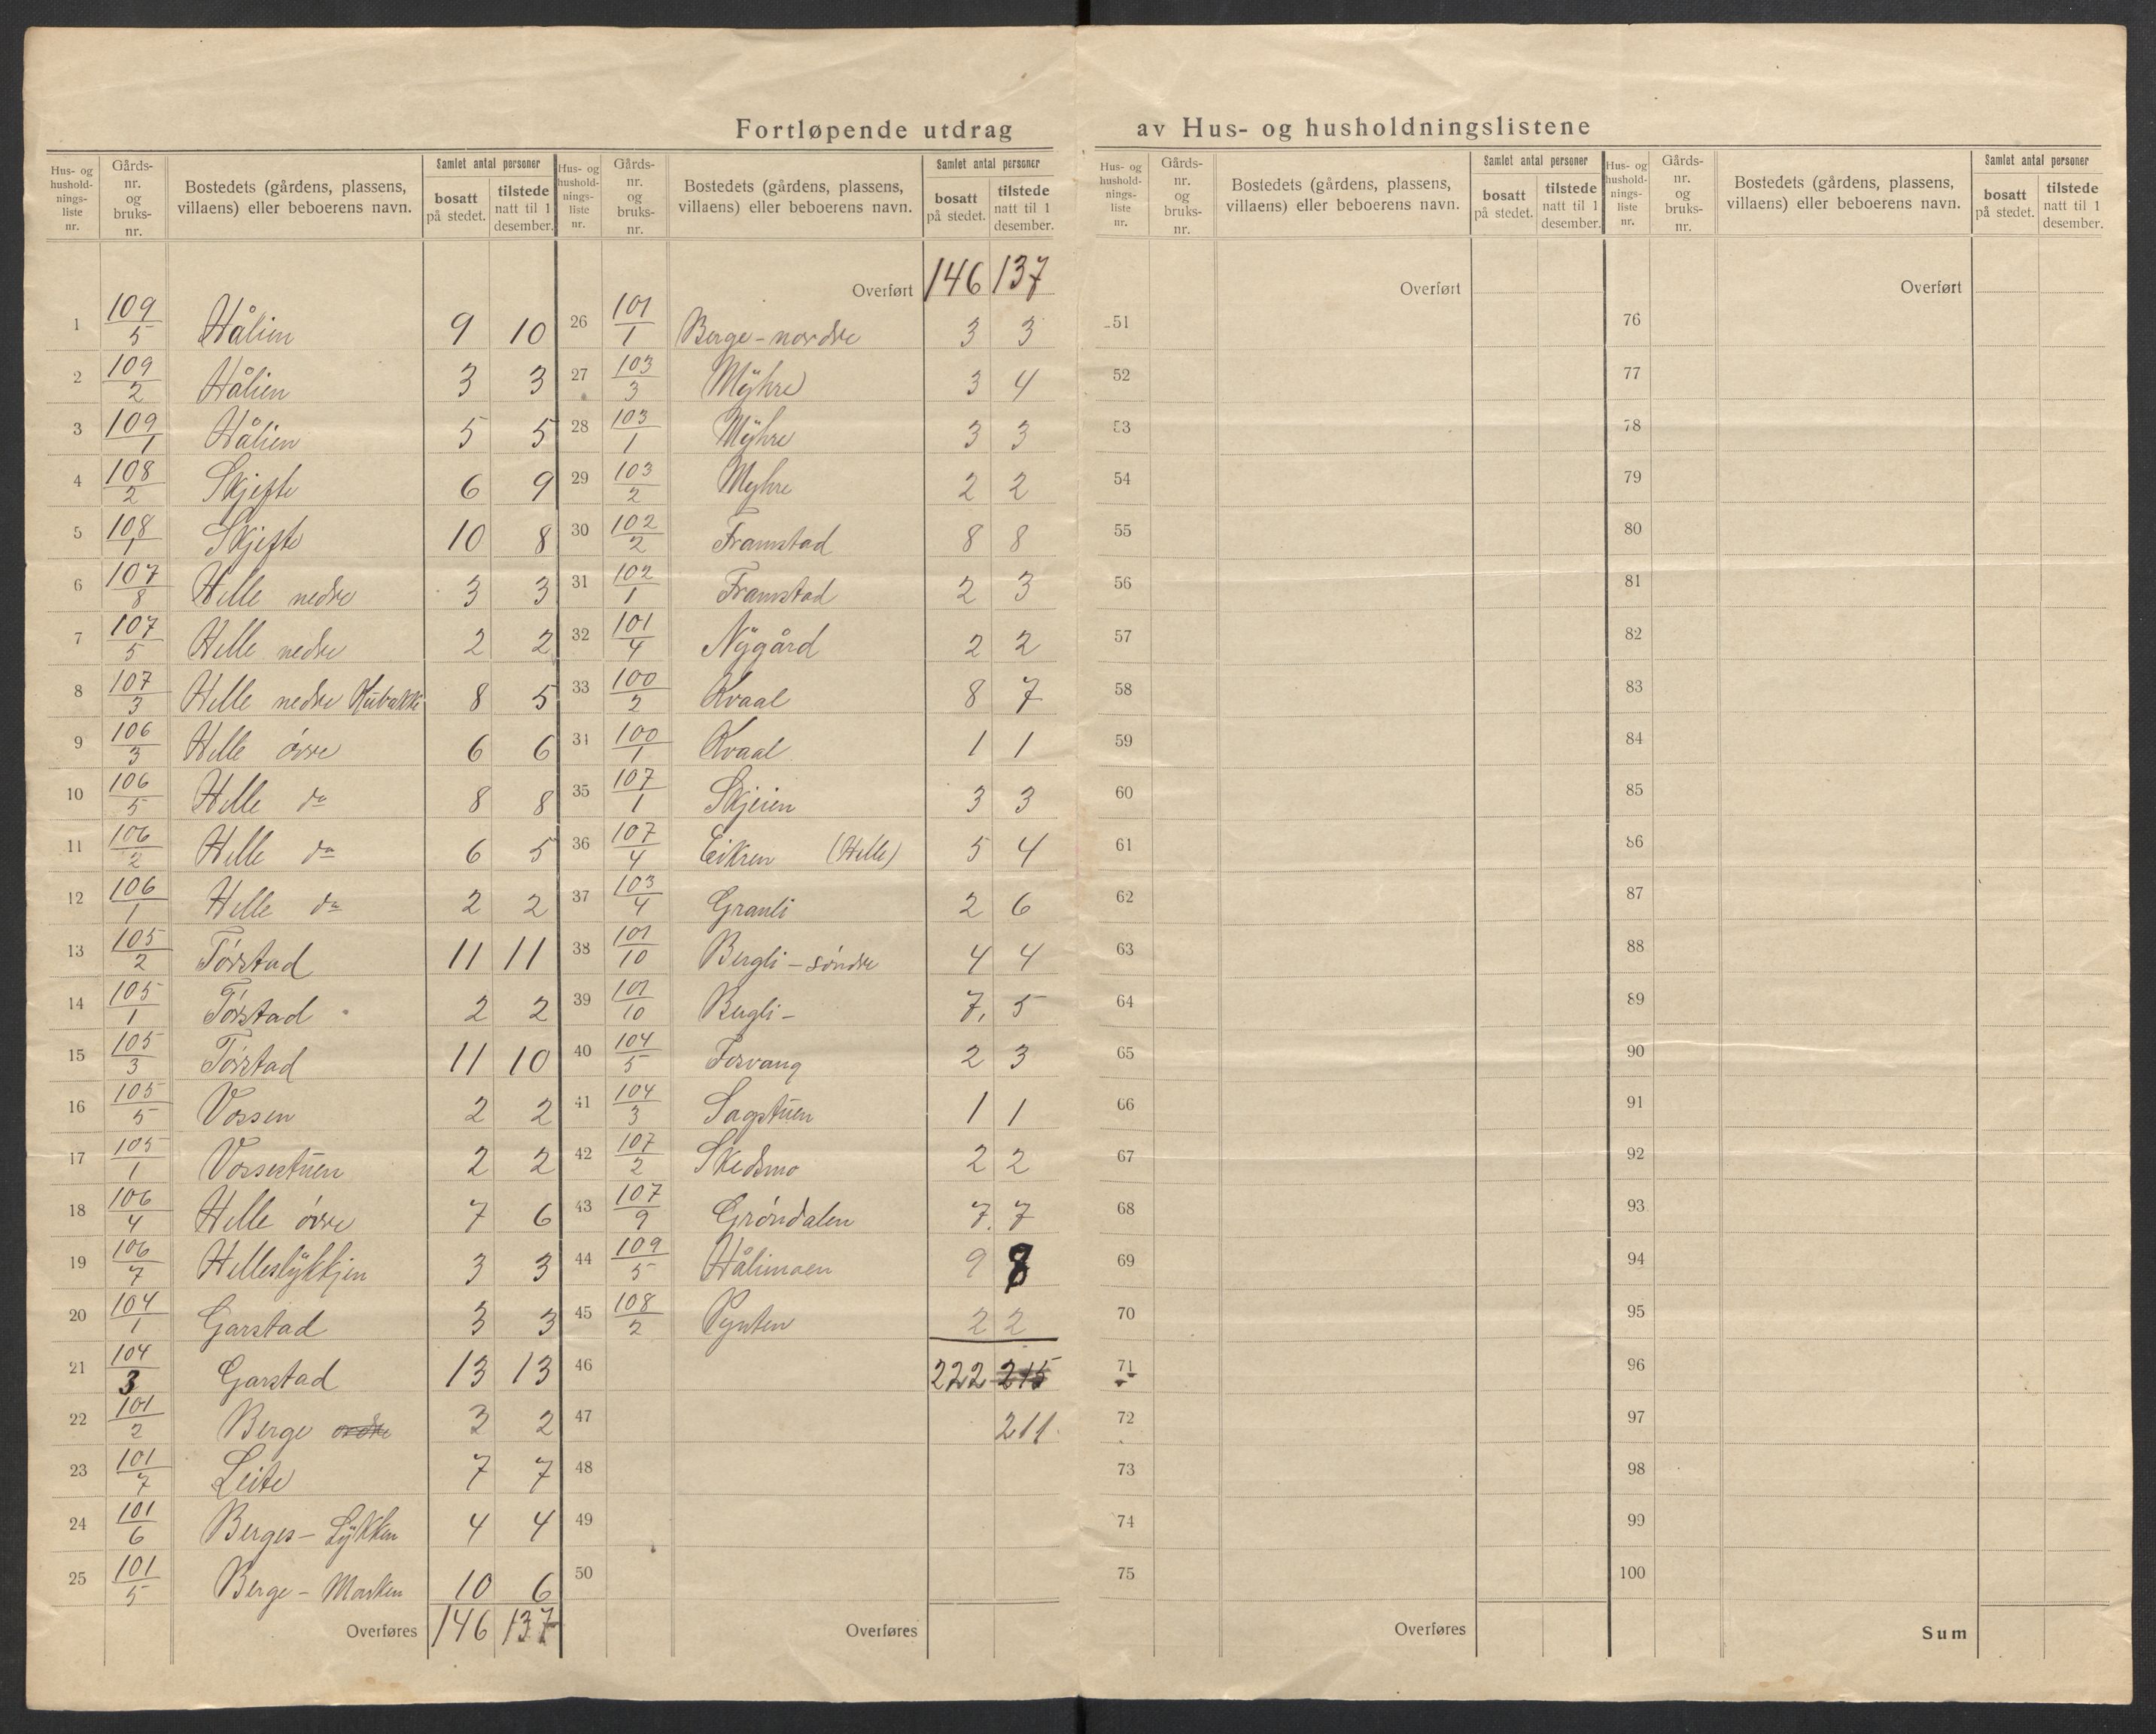 Fortløpende utdrag av Hus- og husholdningslistene
Hus- og hushold-nings-liste nr. | Gårds-nr. og bruks-nr. | Bostedets (gårdens, plassens, villaens) eller beboerens navn. | Samlet antal personer | bosatt på stedet. | tilstede natt til 1 desember.
1 109/5 Hålien 9 10
2 109/2 Hålien 3 3
3 109/1 Hålien 5 5
4 108/2 Skjefte 6 9
5 108/1 Skjefte 10 8
6 107/8 Helle nedre 3 3
7 107/5 Helle nedre 2 2
8 107/3 Helle nedre Kubakke 8 5
9 106/3 Helle övre 6 6
10 106/5 Helle do 8 8
11 106/2 Helle do 6 5
12 106/1 Helle do 2 2
13 105/2 Törstad 11 11
14 105/1 Törstad 2 2
15 105/3 Törstad 11 10
16 105/5 Vossen 2 2
17 105/1 Vossestuen 2 2
18 106/4 Helle övre 7 6
19 106/7 Helleslykkjen 3 3
20 104/1 Garstad 3 3
21 104/3 Garstad 13 13
22 101/2 Berge 3 2
23 101/7 Leite 7 7
24 101/6 Berges-Lykken 4 4
25 101/5 Berge-Marken 10 6
Overføres 146 137
Hus- og hushold-nings-liste nr. | Gårds-nr. og bruks-nr. | Bostedets (gårdens, plassens, villaens) eller beboerens navn. | Samlet antal personer | bosatt på stedet. | tilstede natt til 1 desember.
Overført 146 137
26 101/1 Berge-nordre 3 3
27 103/3 Myhre 3 4
28 103/1 Myhre 3 3
29 103/2 Myhre 2 2
30 102/2 Framstad 8 8
31 102/1 Framstad 2 3
32 101/4 Nygård 2 2
33 100/2 Kvaal 8 7
34 100/1 Kvaal 1 1
35 107/1 Skjeien 3 3
36 107/4 Eikren (Helle) 5 4
37 103/4 Granli 2 6
38 101/10 Bergli-söndre 4 4
39 101/10 Bergli- 7, 5
40 104/5 Forvang 2 3
41 104/3 Sagstuen 1 1
42 107/2 Skedsmo 2 2
43 107/9 Gröndalen 7. 7
44 109/5 Hålimoen 9 8
45 108/2 Pynten 2 2
46 222 215
47 211
48
49
50
Overføres
Hus- og hushold-nings-liste nr. | Gårds-nr. og bruks-nr. | Bostedets (gårdens, plassens, villaens) eller beboerens navn. | Samlet antal personer | bosatt på stedet. | tilstede natt til 1 desember.
Overført
51
52
53
54
55
56
57
58
59
60
61
62
63
64
65
66
67
68
69
70
71
72
73
74
75
Overføres
Hus- og hushold-nings-liste nr. | Gårds-nr. og bruks-nr. | Bostedets (gårdens, plassens, villaens) eller beboerens navn. | Samlet antal personer | bosatt på stedet. | tilstede natt til 1 desember.
Overført
76
77
78
79
80
81
82
83
84
85
86
87
88
89
90
91
92
93
94
95
96
97
98
99
100
Sum